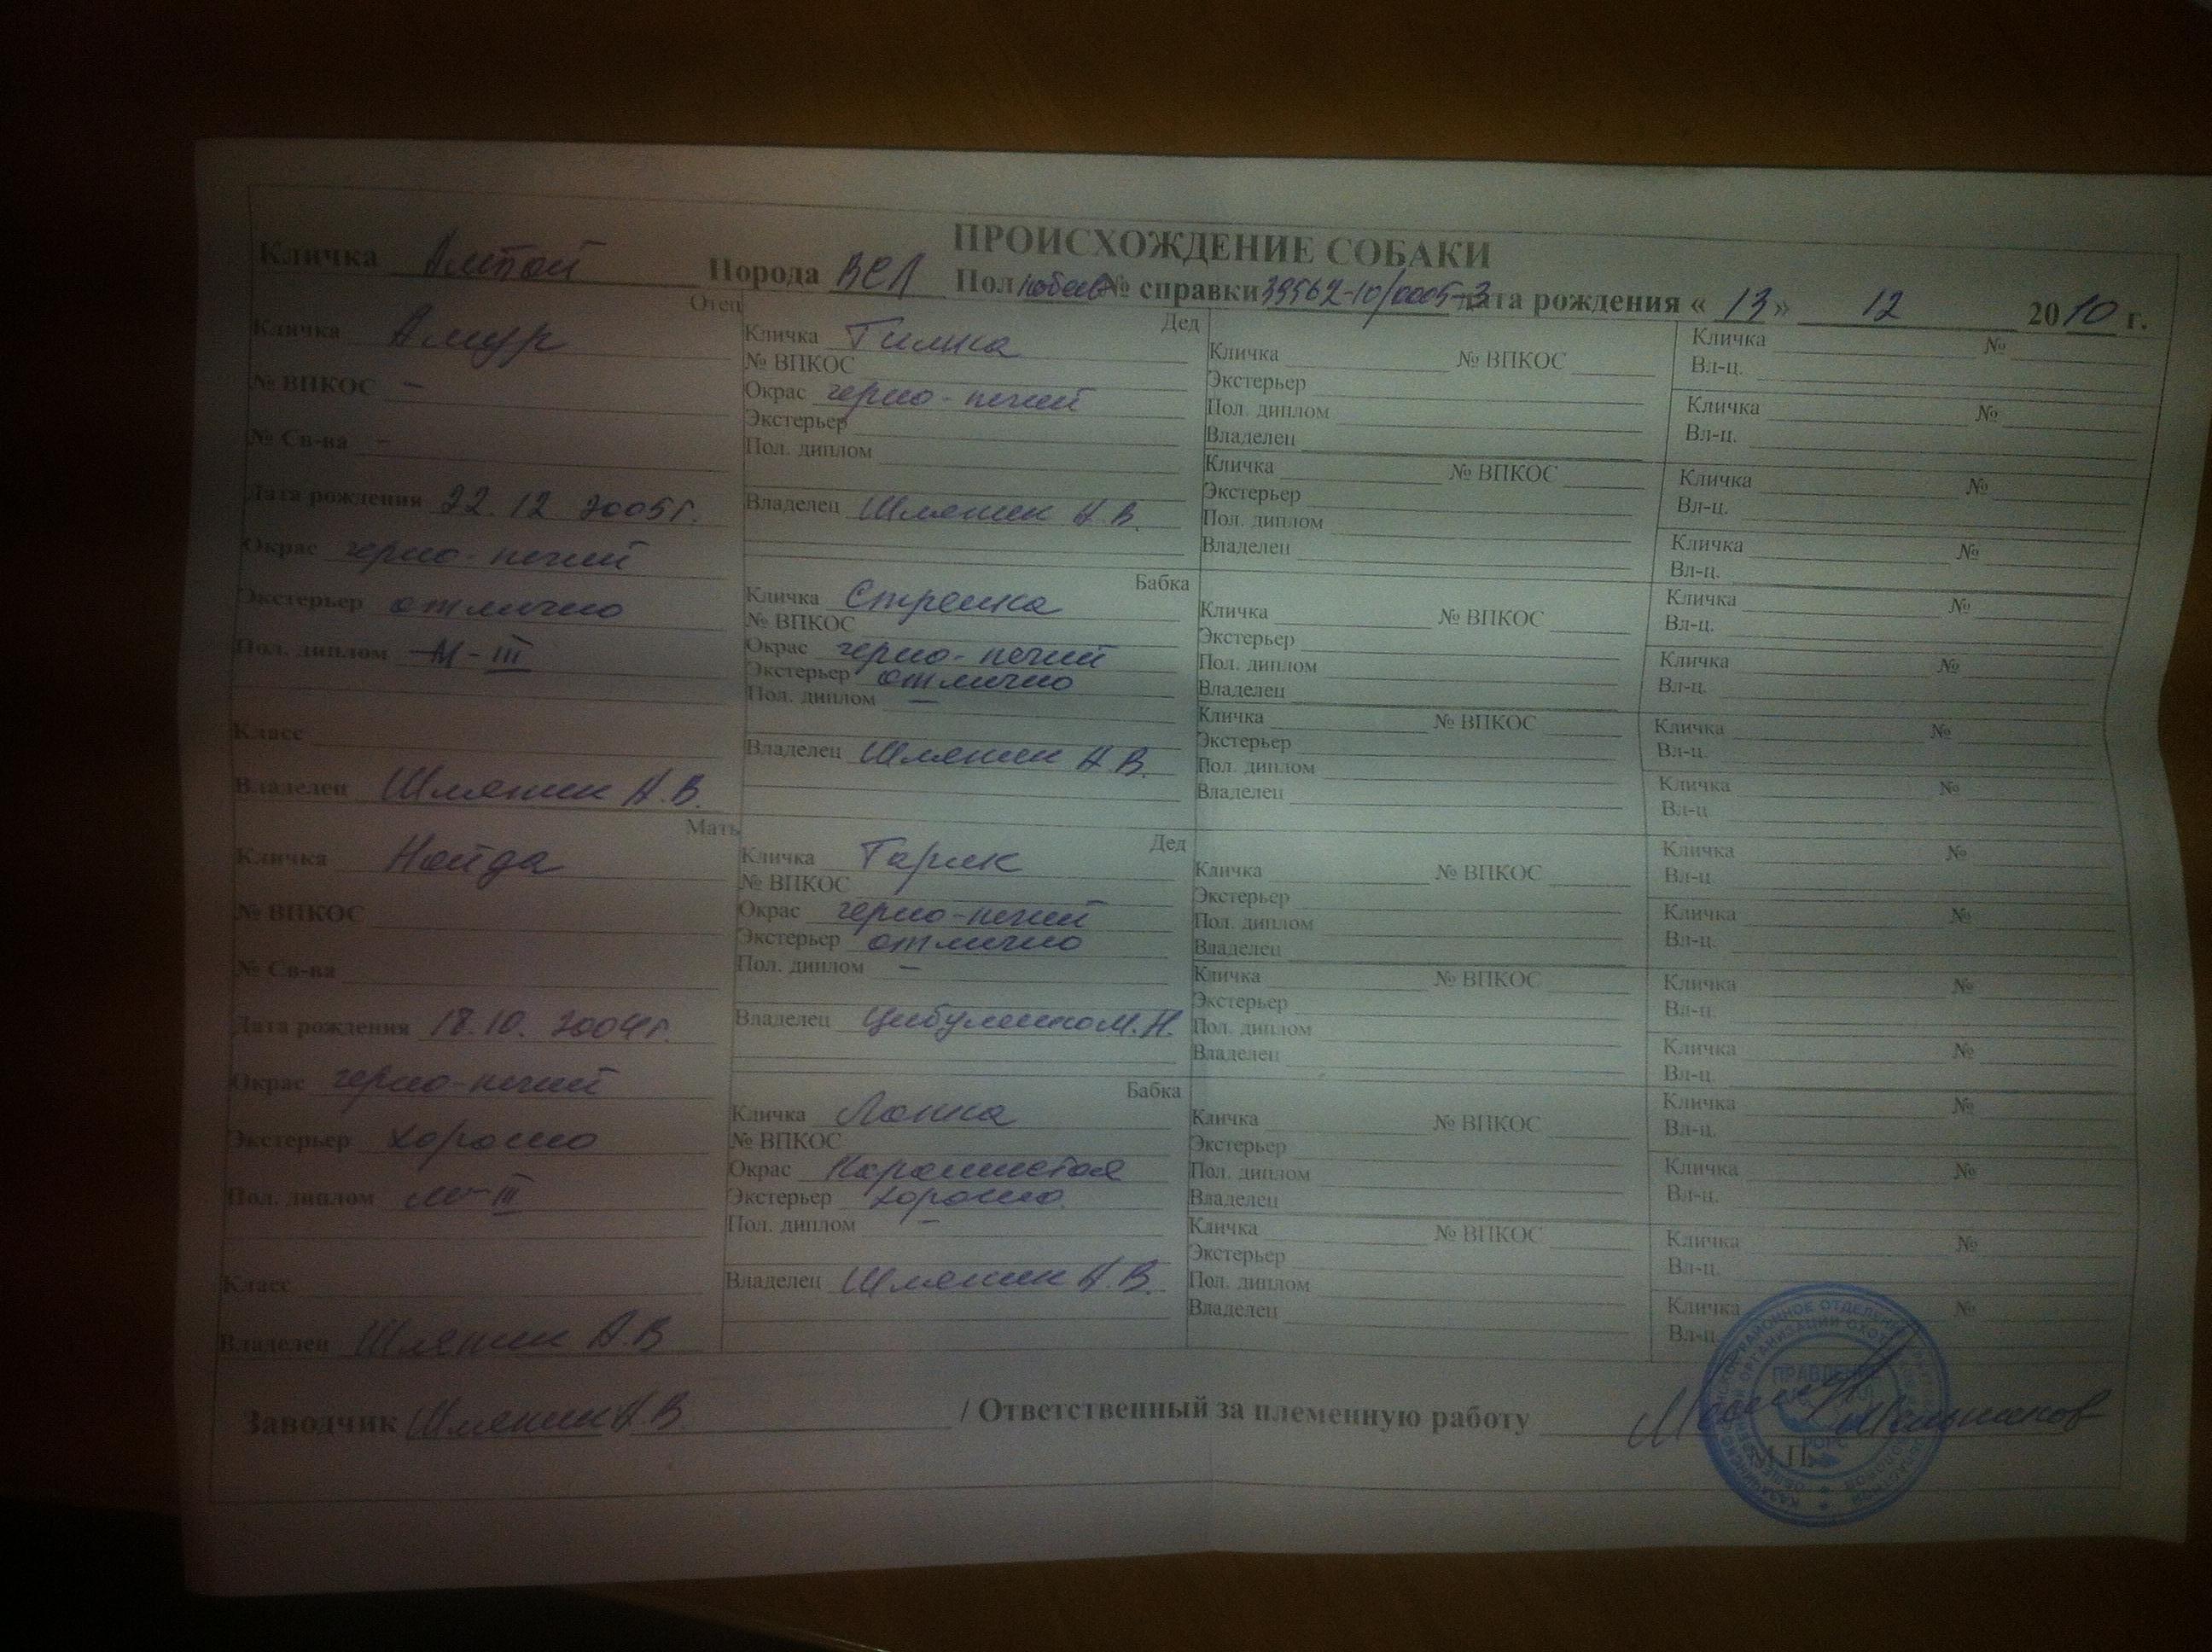 ПРОИСХОЖДЕНИЕ СОБАКИ
Кличка Алтай Порода ВСЛ Пол кобель № справки 39562-10/0005-3 дата рождения « 13 » 12 2010 г.
Отец
Кличка Амур
№ ВПКОС –
№ Св-ва –
Дата рождения 22.12 2005г.
Окрас черно-пегий
Экстерьер отлично
Пол. диплом М-III
Класс
Владелец А.В.
Мать
Кличка Найда
№ ВПКОС
№ Св-ва
Дата рождения 18.10. 2004г.
Окрас черно-пегий
Экстерьер хорошо
Пол. диплом м-III
Класс
Владелец А.В
Дед
Кличка
№ ВПКОС
Окрас черно-пегий
Экстерьер
Пол. диплом
Владелец А.В.
Бабка
Кличка Стрелка
№ ВПКОС
Окрас черно-пегий
Экстерьер отлично
Пол. диплом –
Владелец А.В.
Дед
Кличка Гарик
№ ВПКОС
Окрас черно-пегий
Экстерьер отлично
Пол. диплом –
Владелец Цибуленко М.Н.
Бабка
Кличка
№ ВПКОС
Окрас
Экстерьер хорошо.
Пол. диплом –
Владелец А.В.
Кличка № ВПКОС
Экстерьер
Пол. диплом
Владелец
Кличка № ВПКОС
Экстерьер
Пол. диплом
Владелец
Кличка № ВПКОС
Экстерьер
Пол. диплом
Владелец
Кличка № ВПКОС
Экстерьер
Пол. диплом
Владелец
Кличка № ВПКОС
Экстерьер
Пол. диплом
Владелец
Кличка № ВПКОС
Экстерьер
Пол. диплом
Владелец
Кличка № ВПКОС
Экстерьер
Пол. диплом
Владелец
Кличка № ВПКОС
Экстерьер
Пол. диплом
Владелец
Кличка №
Вл-ц.
Кличка №
Вл-ц.
Кличка №
Вл-ц.
Кличка №
Вл-ц.
Кличка №
Вл-ц.
Кличка №
Вл-ц.
Кличка №
Вл-ц.
Кличка №
Вл-ц
Кличка №
Вл-ц.
Кличка №
Вл-ц.
Кличка №
Вл-ц.
Кличка №
Вл-ц.
Кличка №
Вл-ц.
Кличка №
Вл-ц.
Кличка №
Вл-ц.
Кличка №
Вл-ц
Заводчик А.В. / Ответственный за племенную работу
М.П.
ПРАВЛЕНИЕ